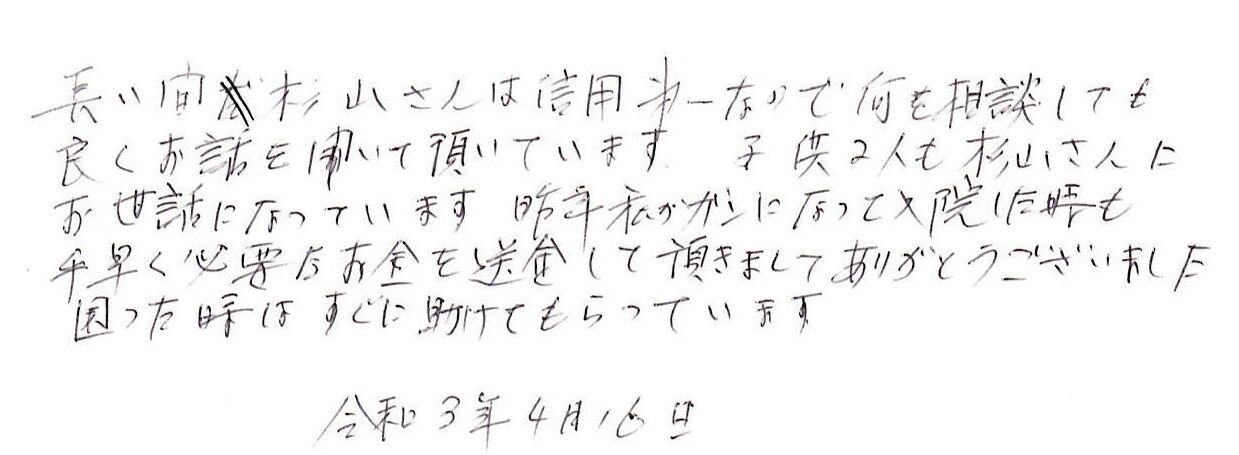 長い間杉山さんは信用第一なので何を相談しても
良くお話を聞いて頂いています 子供2人も杉山さんに
お世話になっています 昨年私がガンになって入院した時も
手早く必要なお金を送金して頂きましてありがとうございました
困った時はすぐに助けてもらっています
令和3年4月16日